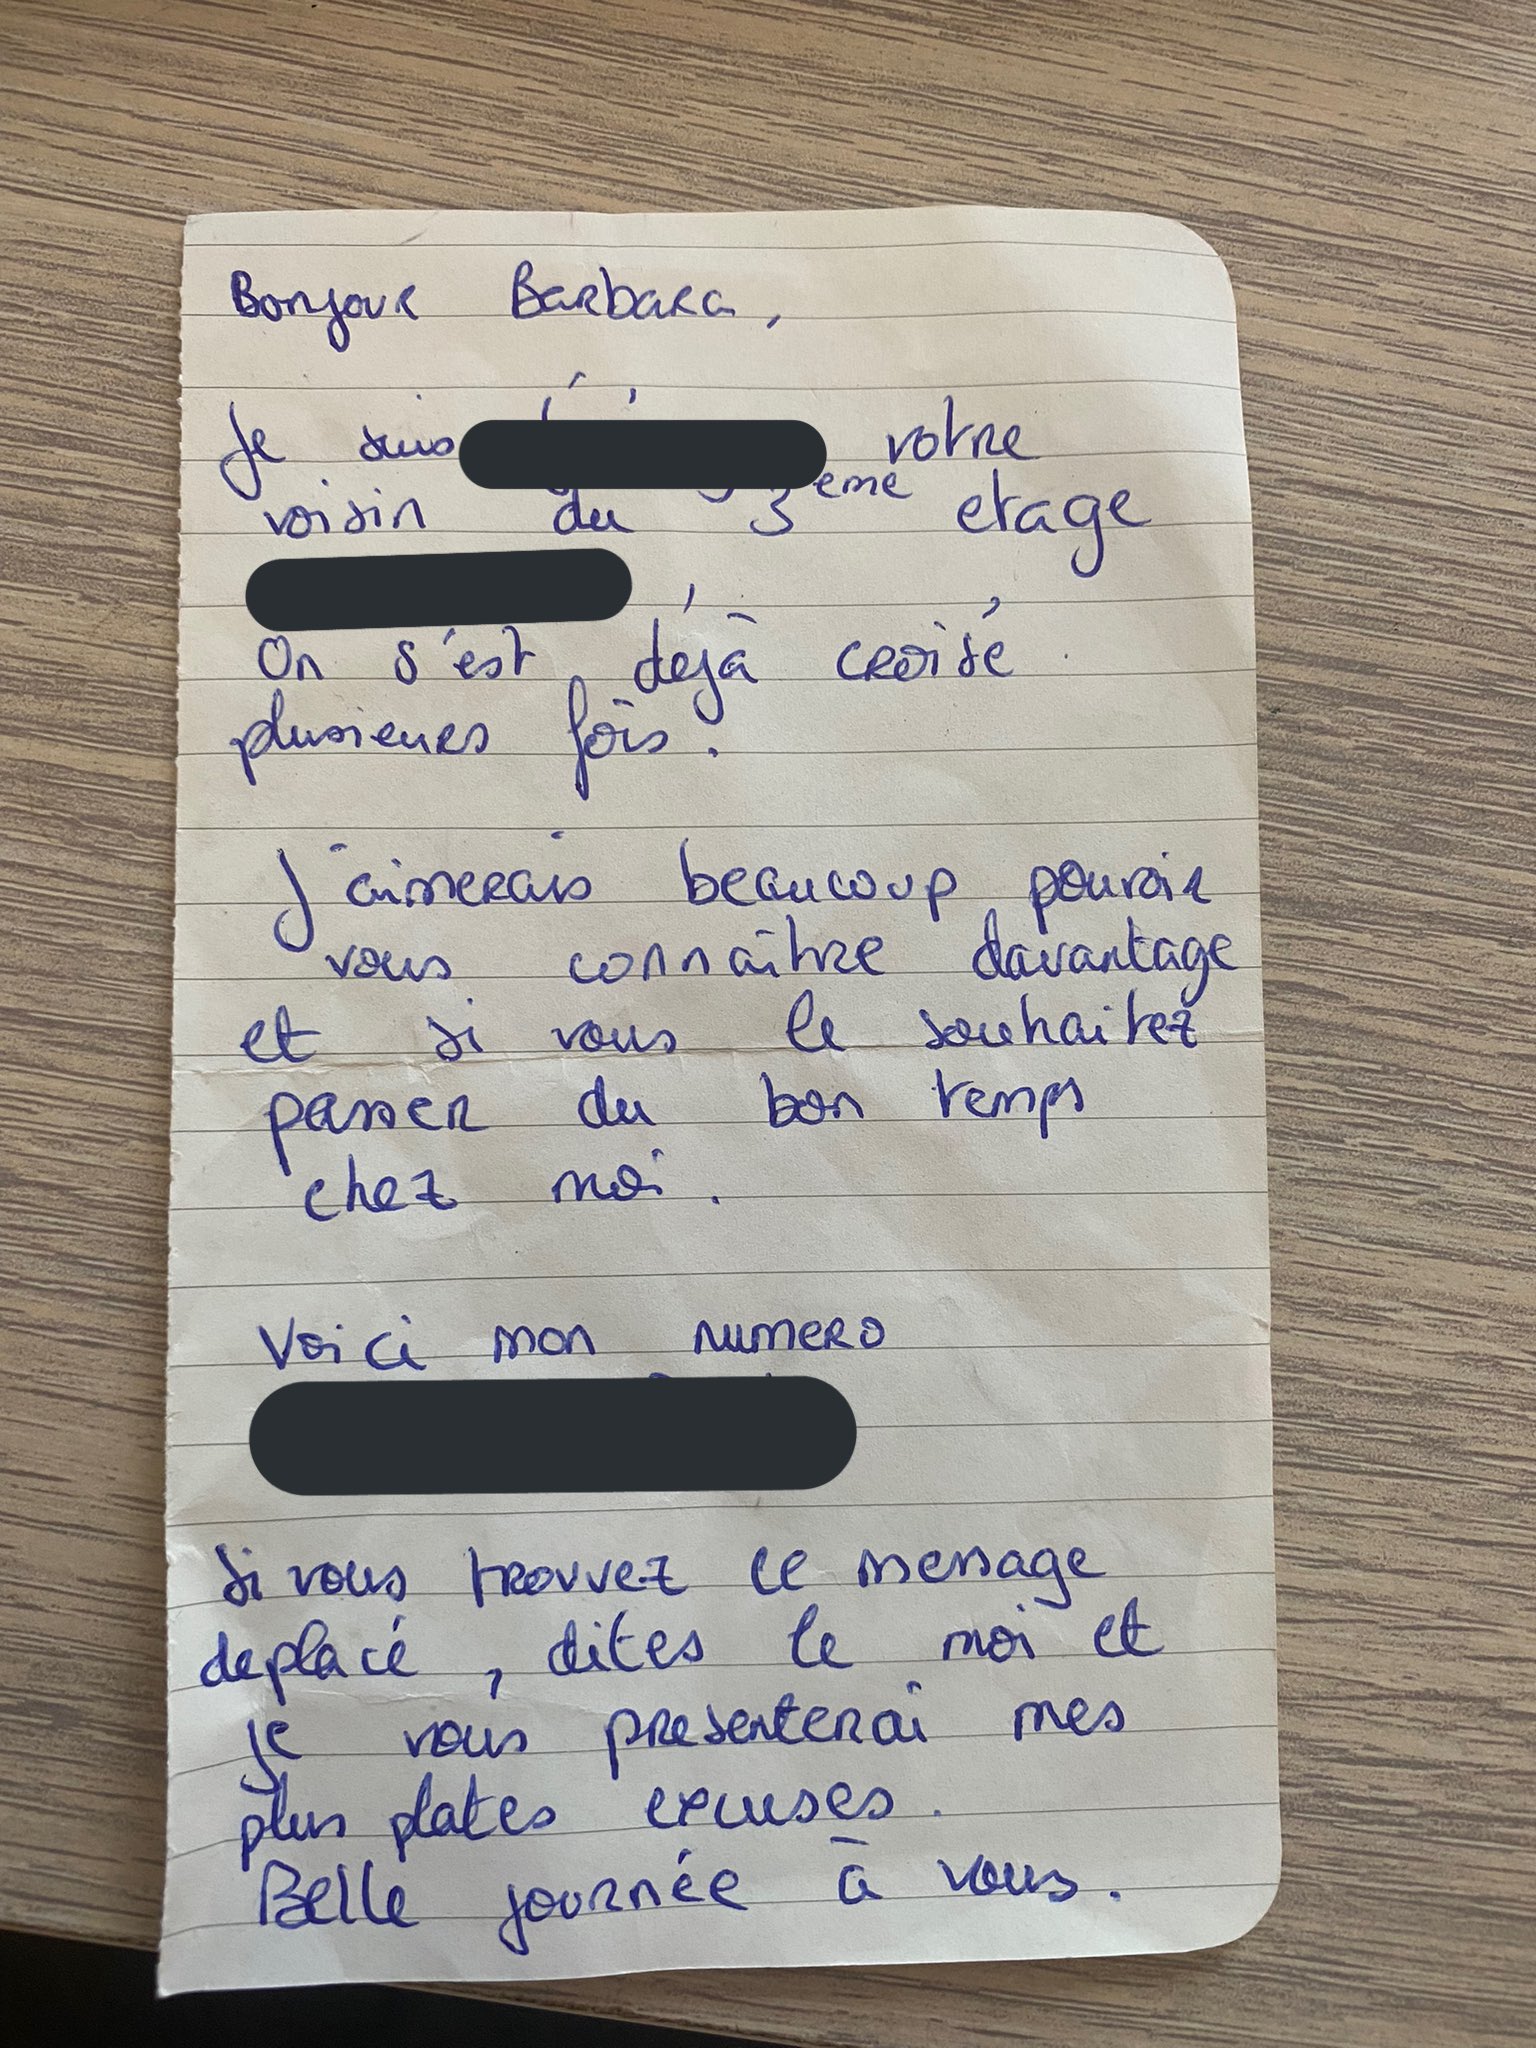 Bonjour Barbara,
Je suis votre
voisin du 3ème etage
On s'est déjà croisé
plusieurs fois.
J'aimerais beaucoup pouvoir
vous connaître davantage
et si vous le souhaitez
passer du bon temps
chez moi.
Voici mon numero
Si vous trouvez ce message
deplacé, dites le moi et
je vous presenterai mes
plus plates excuses.
Belle journée à vous.